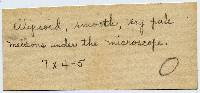 ellipsoid, smooth, very pale
under the microscope.
7 x 4-5